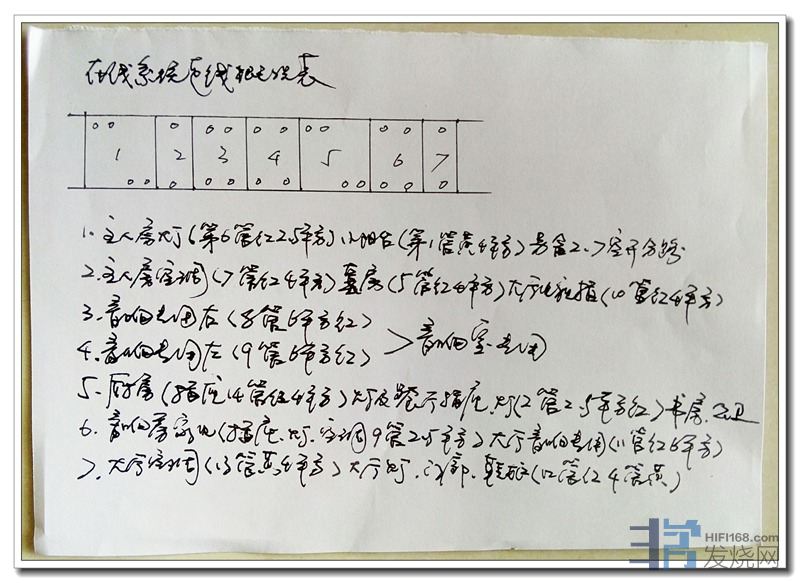 在线系统电线相关说表
1 2 3 4 5 6 7
1. 主人房灯(第6管红2.5平方)小阳台(第1管黄4平方)另留2.7空开分路
2. 主人房空调(7管红4平方)(5管红4平方)大厅插(10管红4平方)
3. 音响专用右(8管6平方红)
4. 音响专用左(9管6平方红)
音响室专用
5. 厨房(插座14管红4平方)灯及餐厅插座.灯(2管2.5平方红)书房.公卫
6. 音响房家电(插座.灯.空调9管2.5平方)大厅音响专用(11管红6平方)
7. 大厅空调(13管黄4平方)大厅灯.内部.鞋柜(12管红4管黄)
HIFI168.com
发烧网